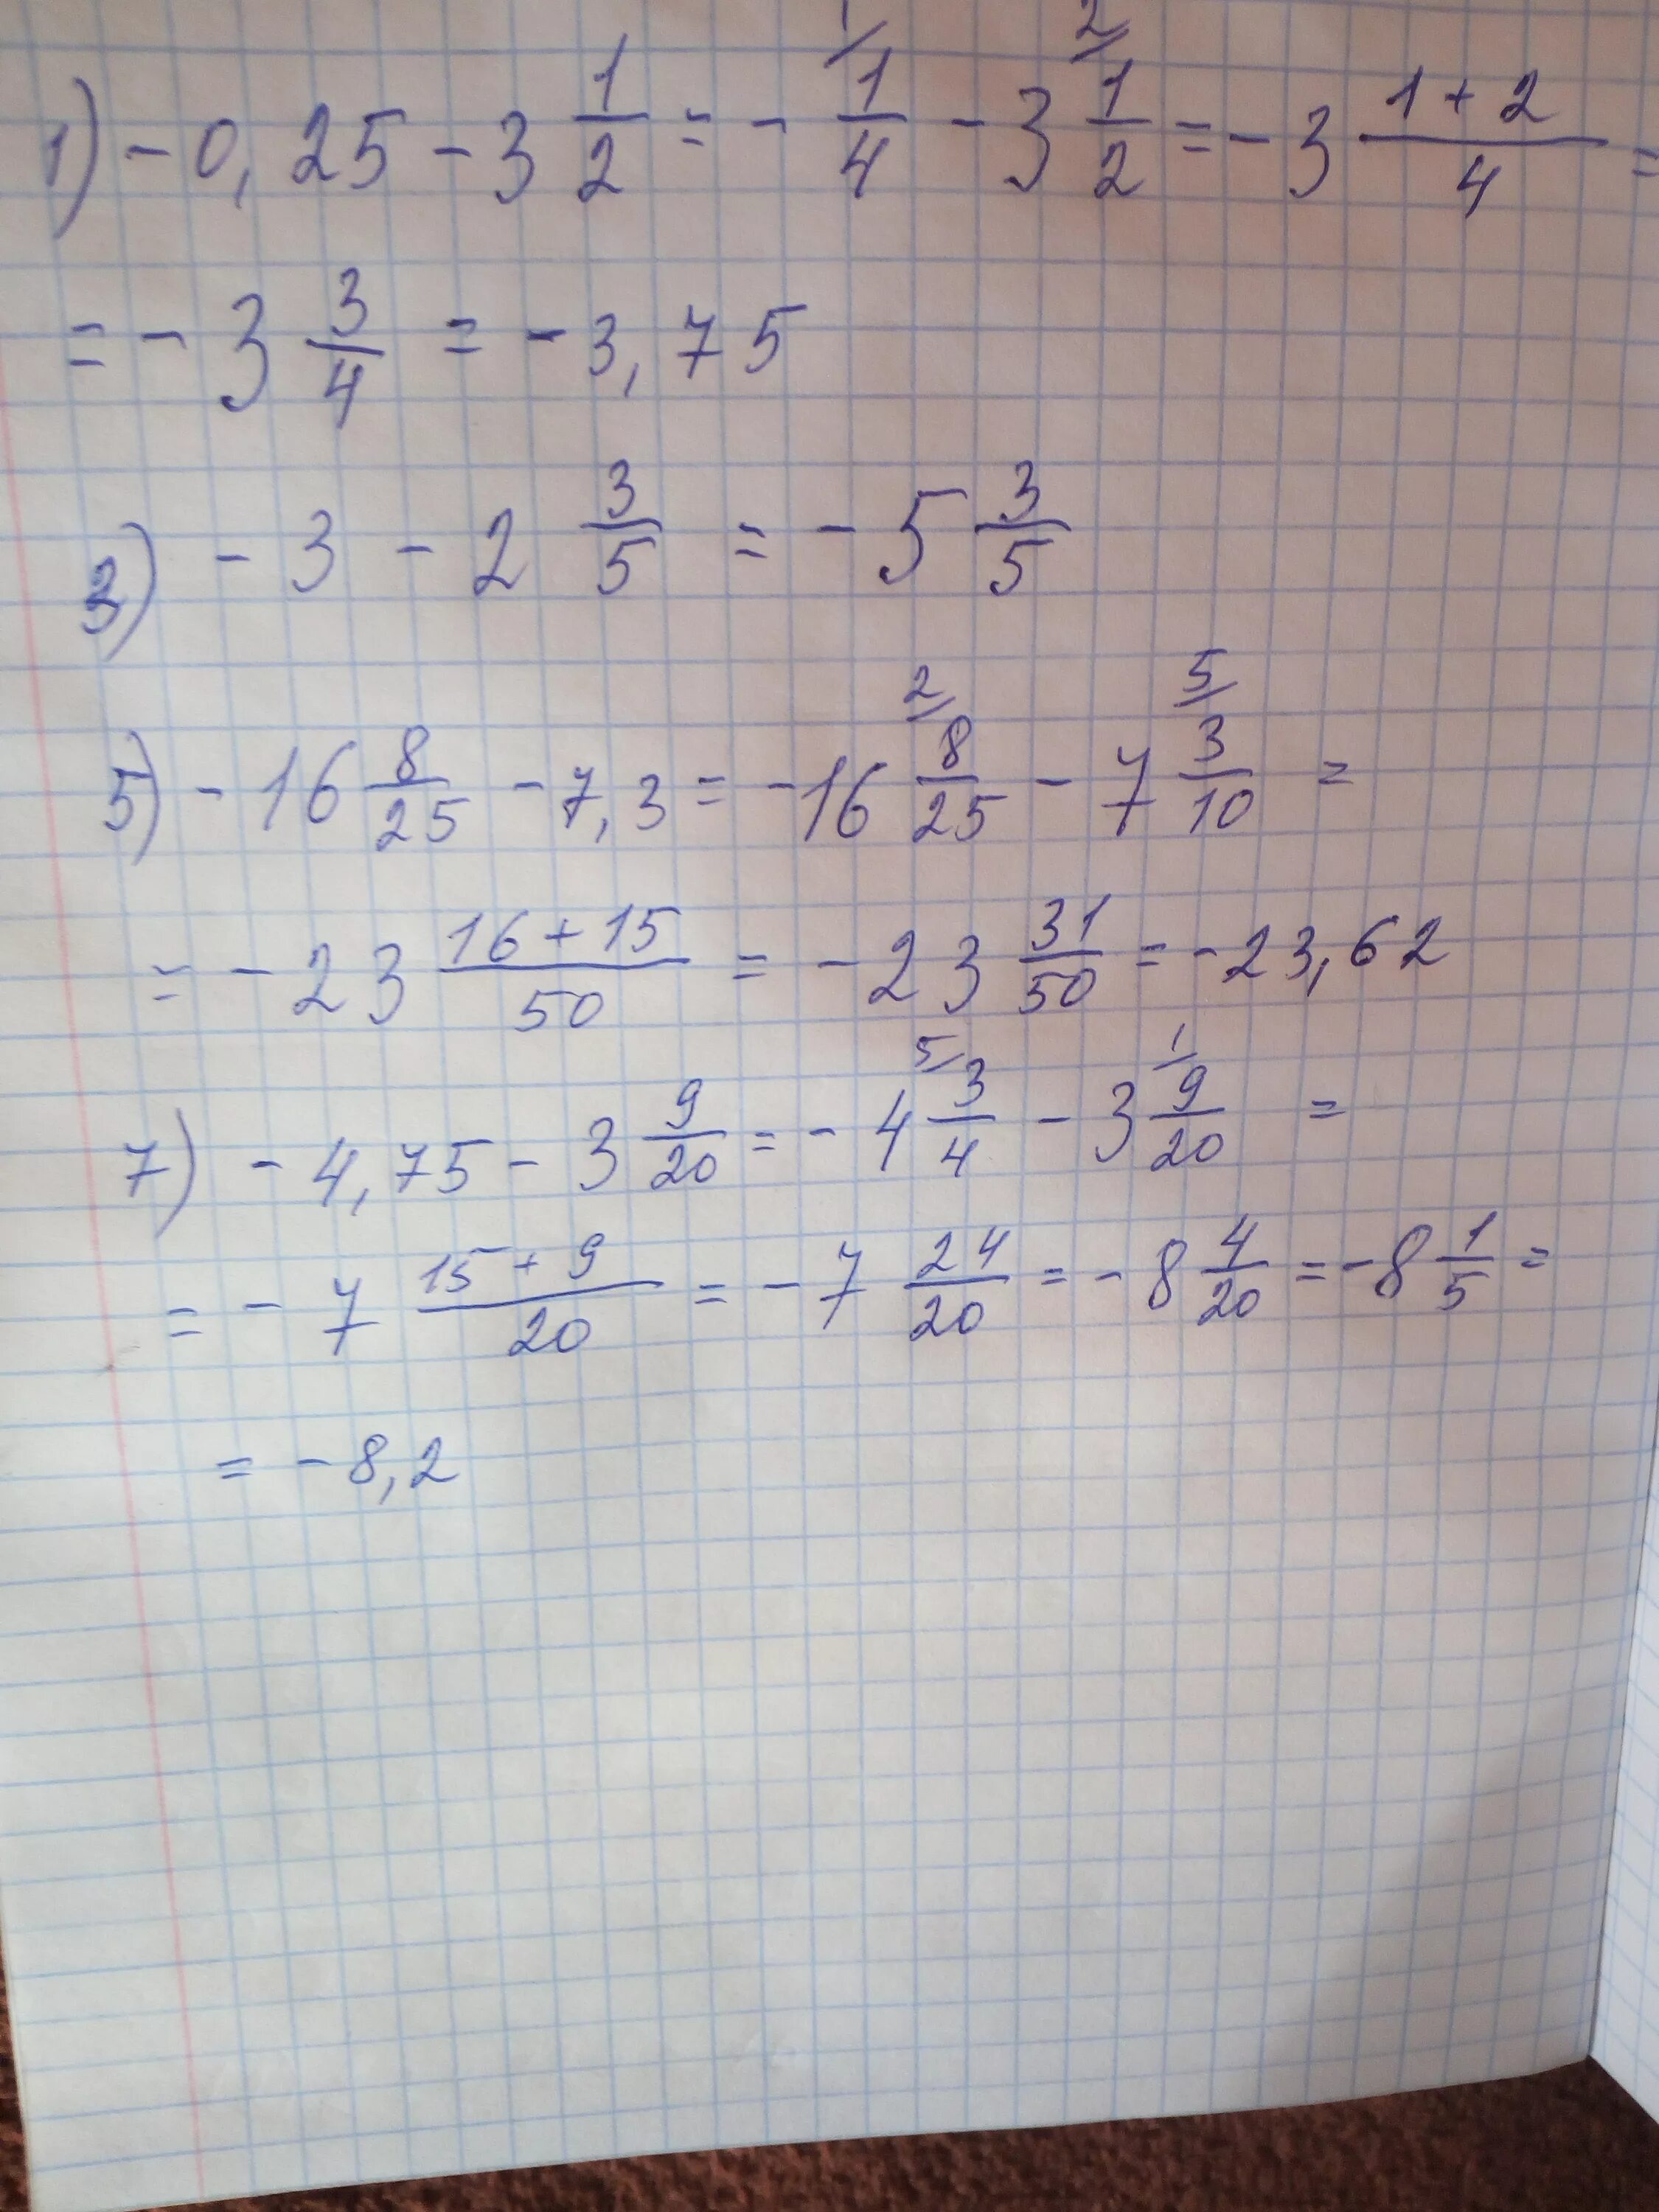 1) - 0,25 - 3 1/2 = - 1/ 1/4 - 3 2/ 1/2 = - 3 (1+2)/4 =
= - 3 3/4 = - 3,75
3) - 3 - 2 3/5 = - 5 3/5
5) - 16 8/25 - 7,3 = - 16 2/ 8/25 - 7 5/ 3/10 =
= - 23 (16+15)/50 = - 23 31/50 = - 23,62
7) - 4,75 - 3 9/20 = - 4 5/ 3/4 - 3 1/ 9/20 =
= - 7 (15+9)/20 = - 7 24/20 = - 8 4/20 = - 8 1/5 =
= - 8,2